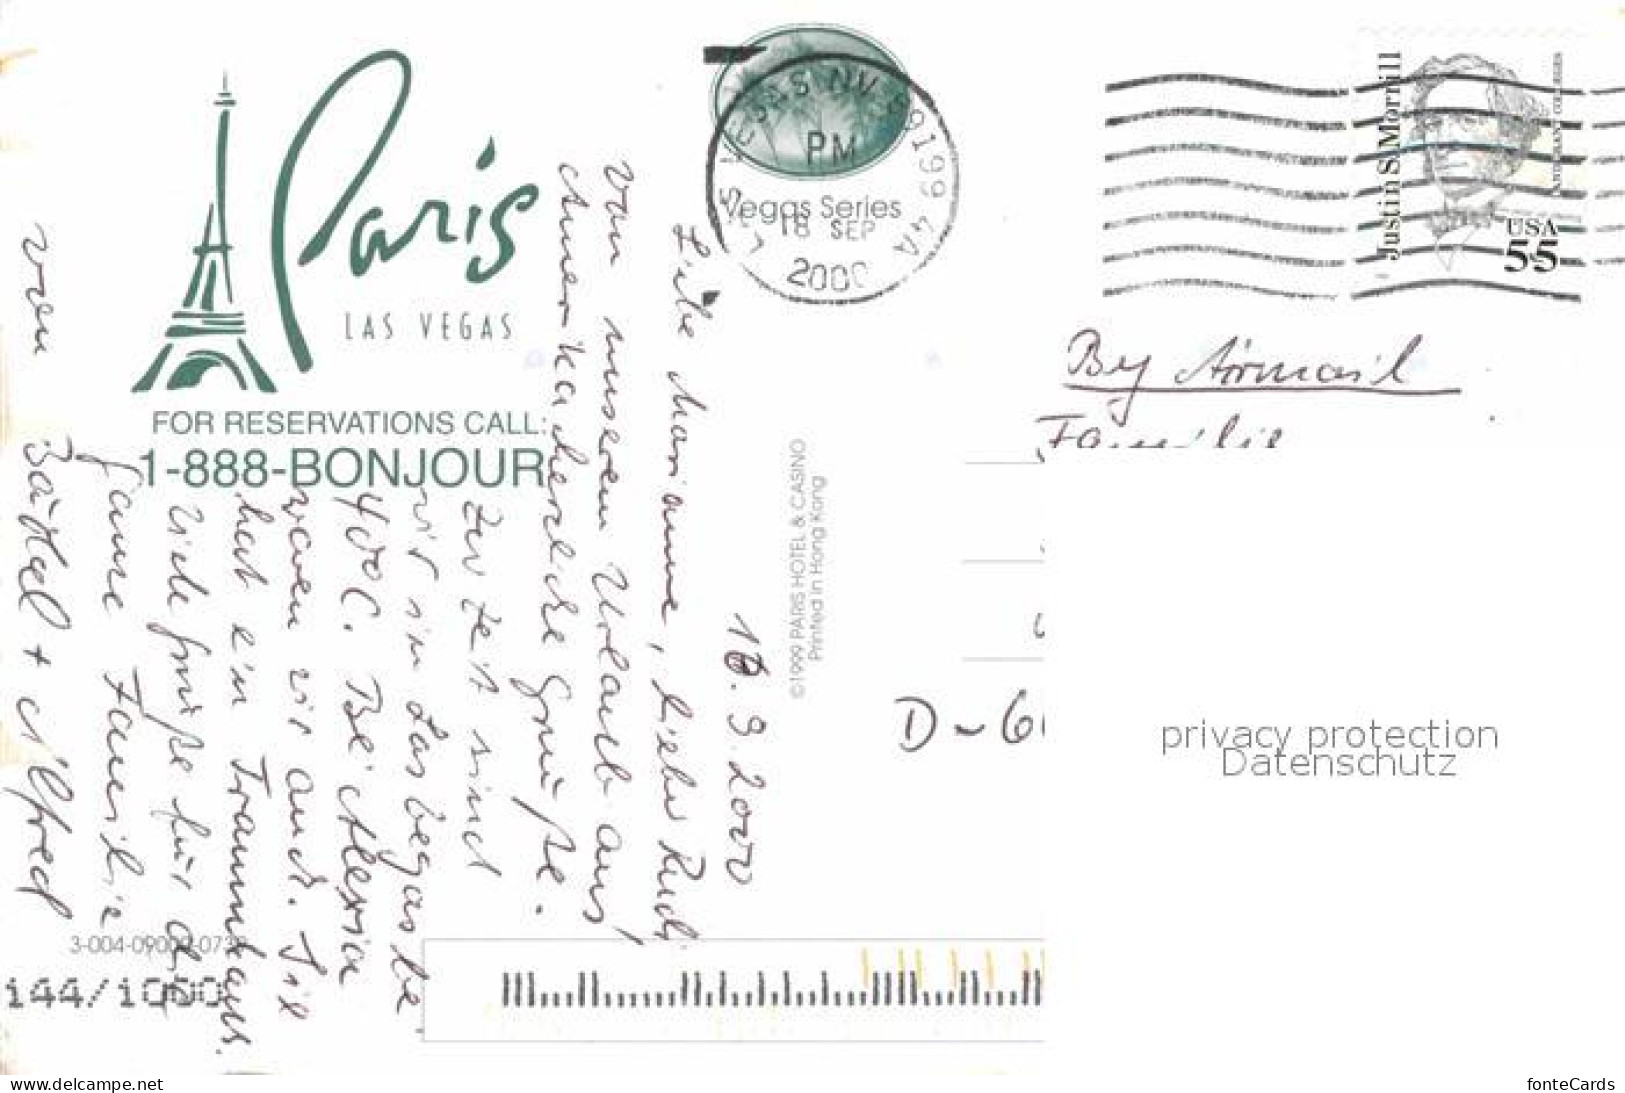 Paris
LAS VEGAS
FOR RESERVATIONS CALL:
1-888-BONJOUR
LAS VEGAS NV 89199 4A
PM
18 SEP
2000
Vegas Series
Justin S. Morrill
LAND GRANT COLLEGES
USA
55
By Airmail
Familie
D-6
©1999 PARIS HOTEL & CASINO
Printed in Hong Kong
16.9.2000
Liebe Marianne, lieber Rudi
von unserem Urlaub aus
Amerika herzliche Grüße.
Zur Zeit sind
wir in Las Vegas bei
40°C. Bei Alexia
waren wir auch. Sie
hat ein Traumhaus.
Viele Grüße für die
ganze Familie
von Bärbel + Alfred
3-004-09000-073
144/1000
privacy protection
Datenschutz
www.delcampe.net
fonteCards